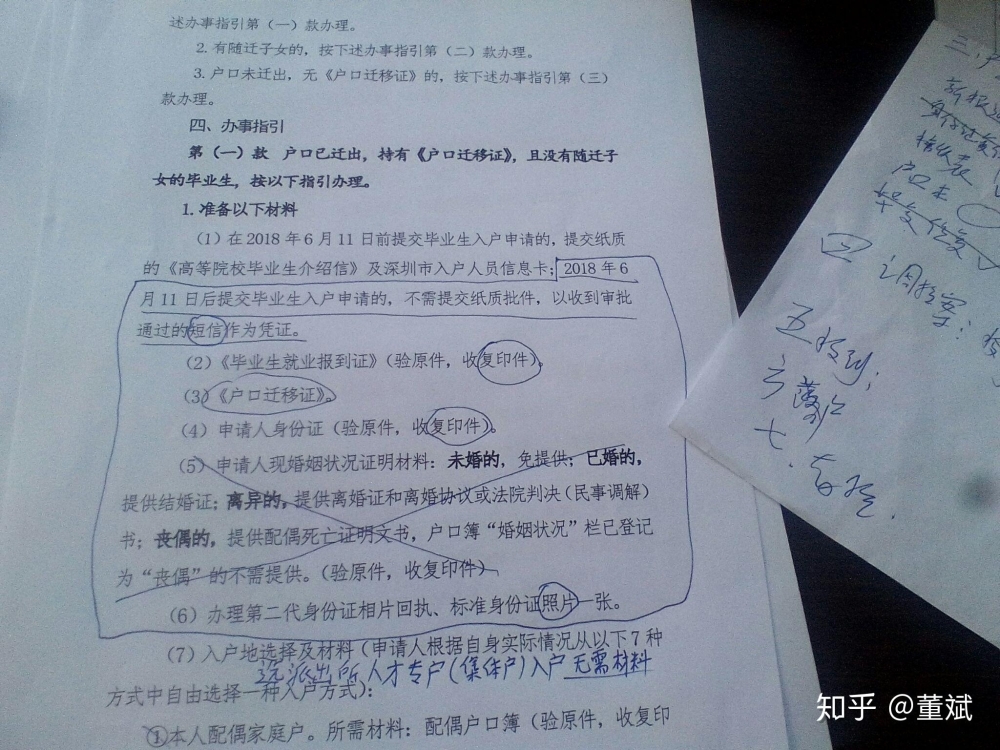 述办事指引第（一）款办理。
2. 有随迁子女的，按下述办事指引第（二）款办理。
3. 户口未迁出，无《户口迁移证》的，按下述办事指引第（三）
款办理。
四、办事指引
第（一）款 户口已迁出，持有《户口迁移证》，且没有随迁子
女的毕业生，按以下指引办理。
1. 准备以下材料
（1）在 2018 年 6 月 11 日前提交毕业生入户申请的，提交纸质
的《高等院校毕业生介绍信》及深圳市入户人员信息卡；2018 年 6
月 11 日后提交毕业生入户申请的，不需提交纸质批件，以收到审批
通过的短信作为凭证。
（2）《毕业生就业报到证》（验原件，收复印件）。
（3）《户口迁移证》。
（4）申请人身份证（验原件，收复印件）。
（5）申请人现婚姻状况证明材料：未婚的，免提供；已婚的，
提供结婚证；离异的，提供离婚证和离婚协议或法院判决（民事调解）
书；丧偶的，提供配偶死亡证明文书，户口簿“婚姻状况”栏已登记
为“丧偶”的不需提供。（验原件，收复印件）
（6）办理第二代身份证相片回执、标准身份证照片一张。
（7）入户地选择及材料（申请人根据自身实际情况从以下 7 种
选派出所人才专户（集体户）入户 无需材料
方式中自由选择一种入户方式）：
①本人配偶家庭户。所需材料：配偶户口簿（验原件，收复印
三、户
接收表
户口本
四 调档案：
五 报到；
六 落户
七、存档.
知乎 @董斌